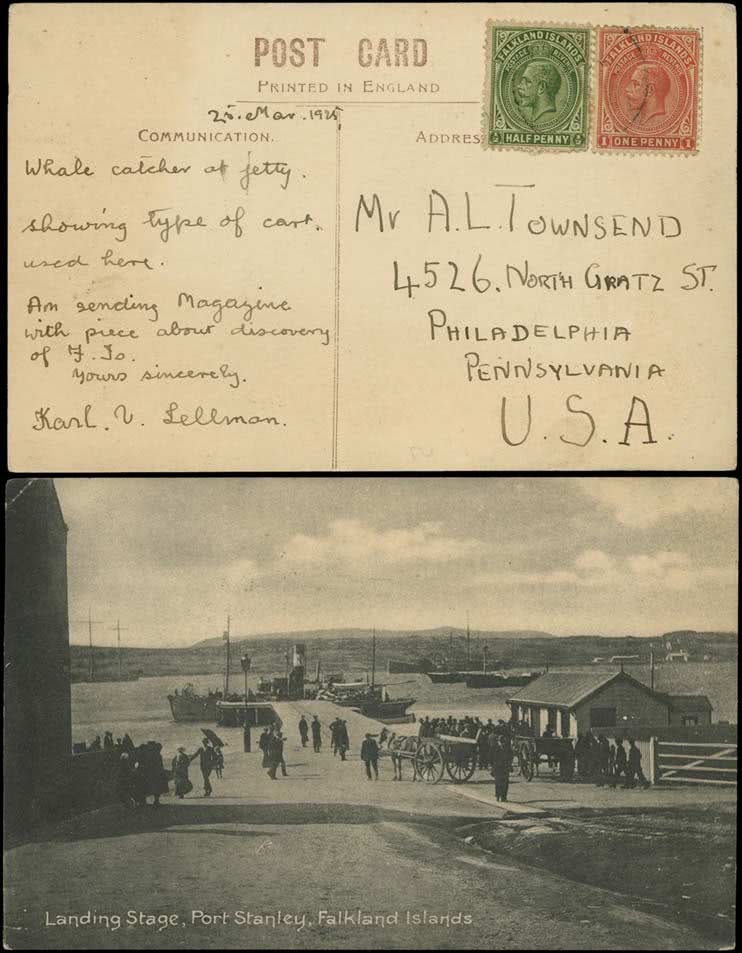 POST CARD
PRINTED IN ENGLAND
FALKLAND ISLANDS
POSTAGE REVENUE
½ HALF PENNY ½
FALKLAND ISLANDS
POSTAGE REVENUE
1 ONE PENNY 1
25. Mar. 1925
COMMUNICATION.
ADDRES
Whale catcher at jetty.
showing type of cart.
used here.
Am sending Magazine
with piece about discovery
of F. Is.
Yours sincerely.
Karl. V. Lellman.
Mr A.L. TOWNSEND
4526. NORTH GRATZ ST.
PHILADELPHIA
PENNSYLVANIA
U.S.A.
Landing Stage, Port Stanley, Falkland Islands